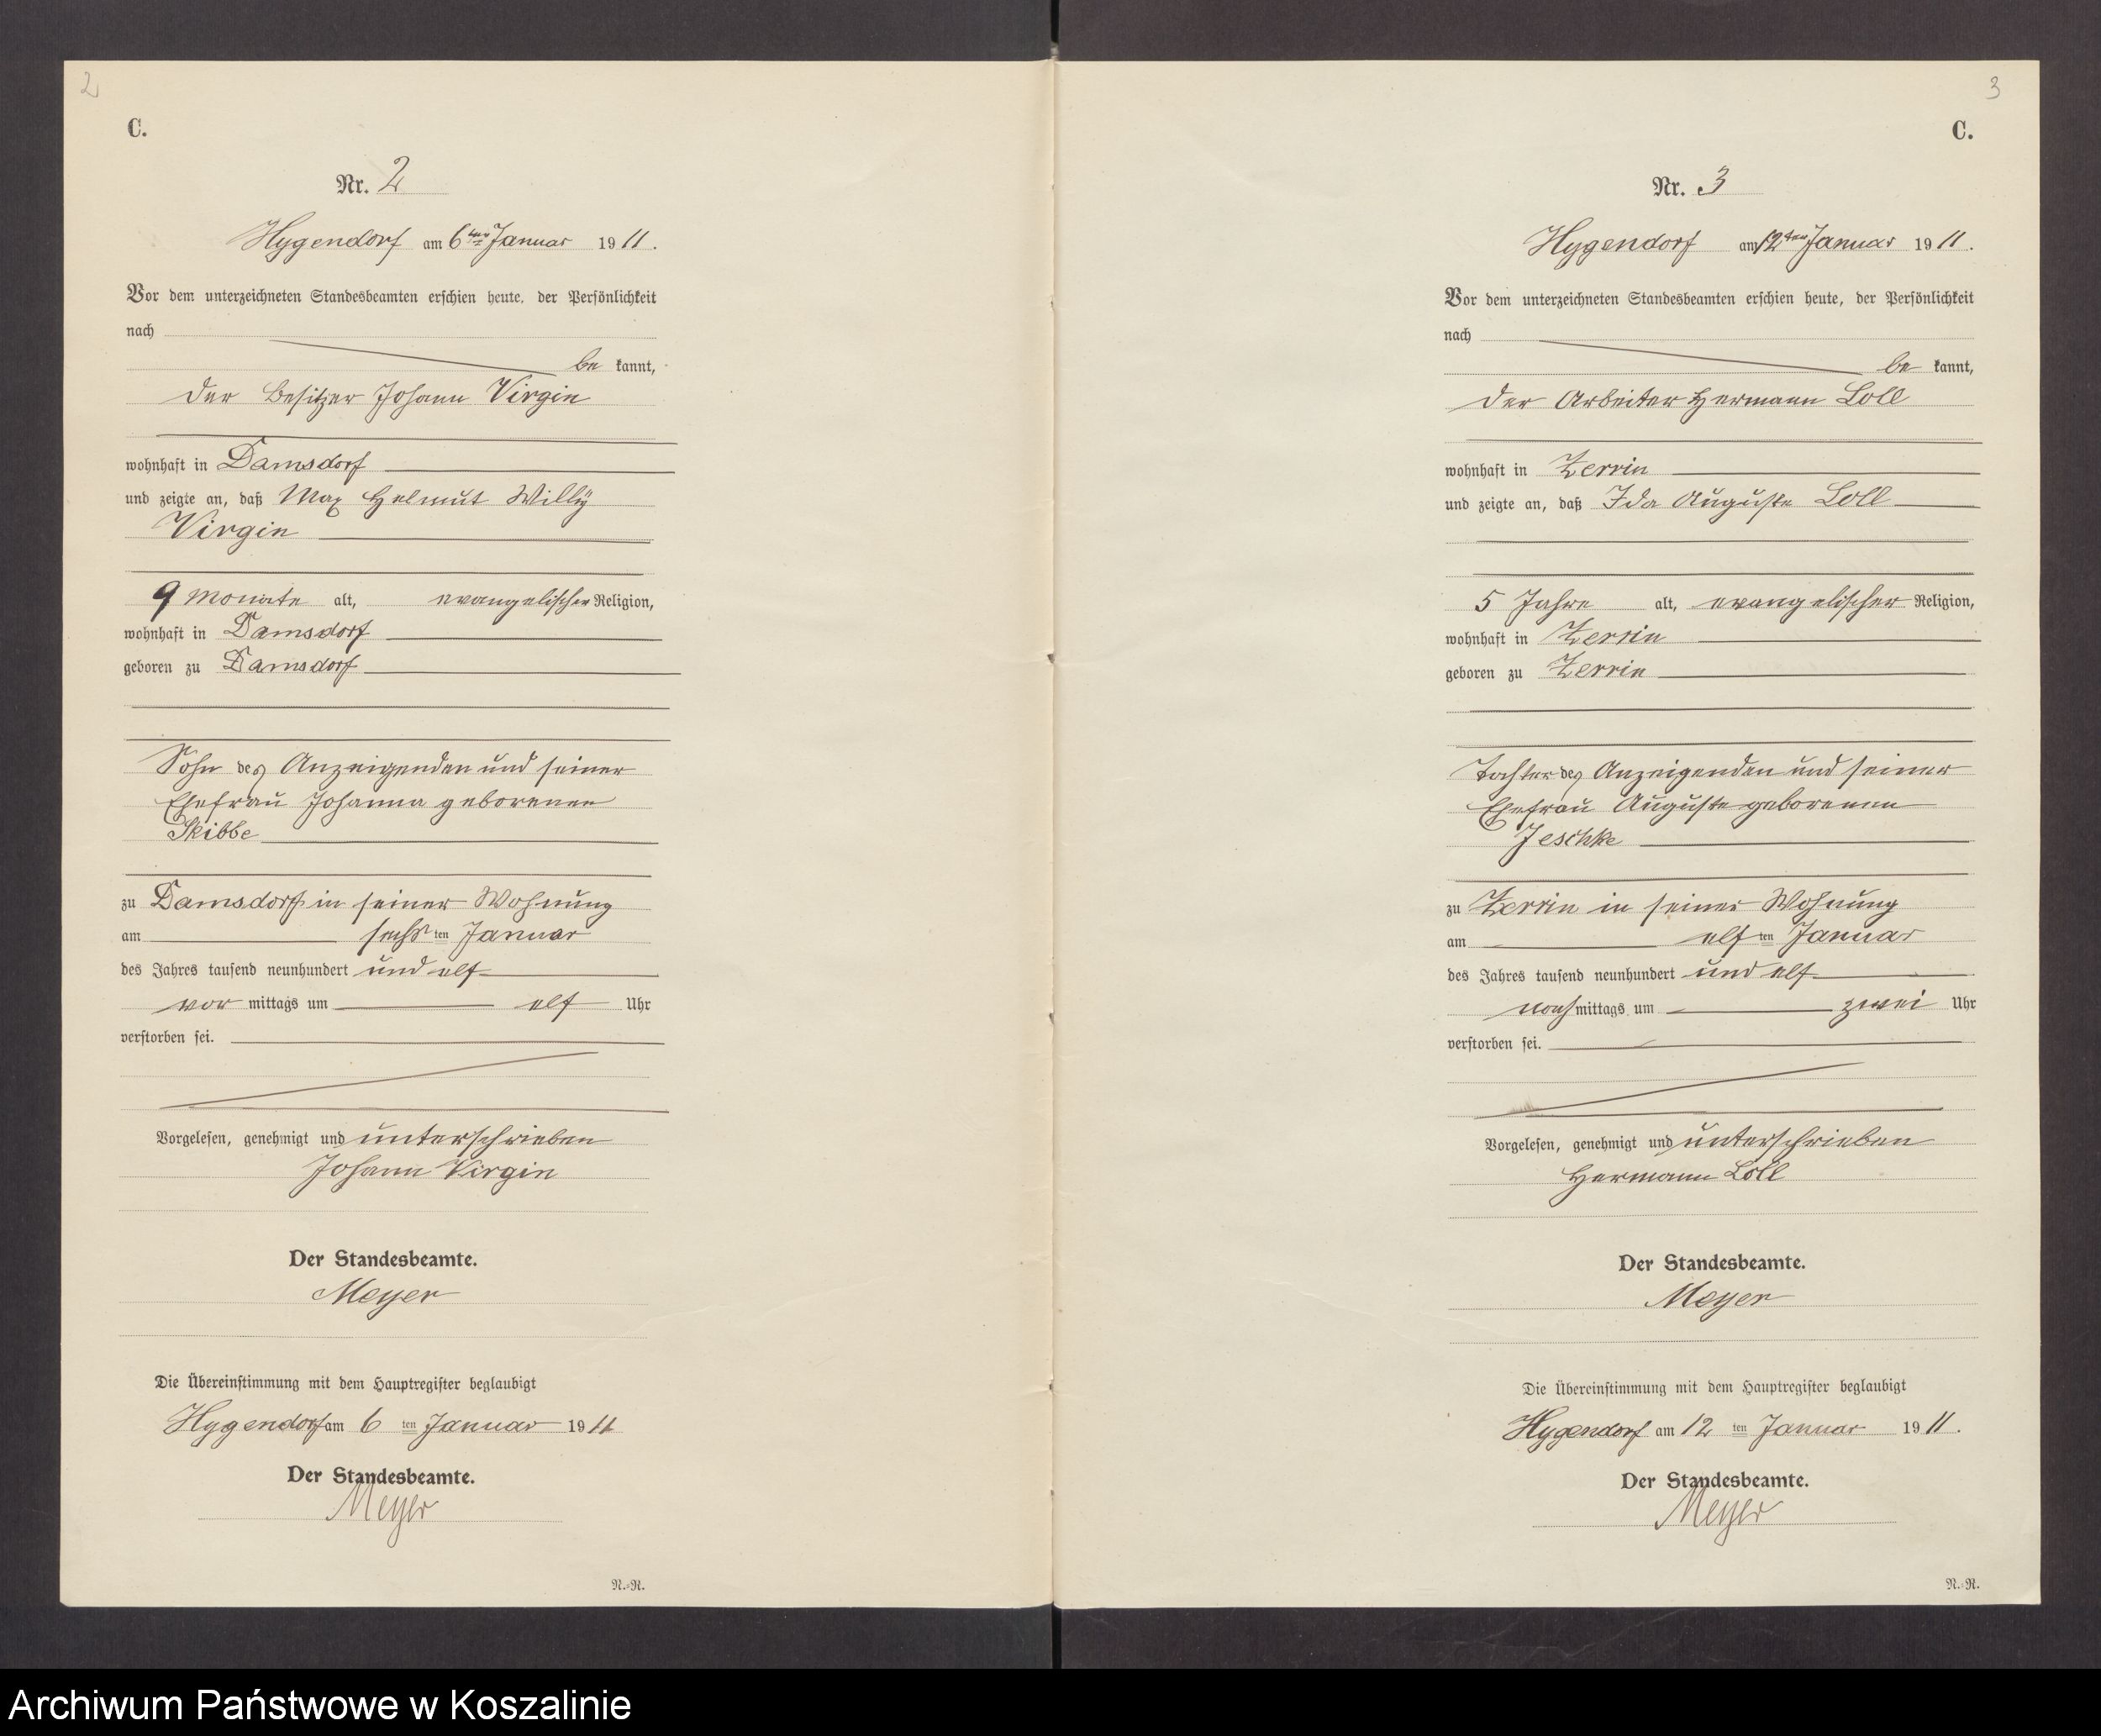 2
C.
Nr. 2
Hygendorf am 6ten Januar 1911.
Vor dem unterzeichneten Standesbeamten erschien heute, der Persönlichkeit
nach
be kannt,
der Besitzer Johann Virgin
wohnhaft in Damsdorf
und zeigte an, daß Max Helmut Willÿ
Virgin
9 Monate alt, evangelischer Religion,
wohnhaft in Damsdorf
geboren zu Damsdorf
Sohn des Anzeigenden und seiner
Ehefrau Johanna geborenen
Skibbe
zu Damsdorf in seiner Wohnung
am sechsten Januar
des Jahres tausend neunhundert und elf
vor mittags um elf Uhr
verstorben sei.
Vorgelesen, genehmigt und unterschrieben
Johann Virgin
Der Standesbeamte.
Meyer
Die Übereinstimmung mit dem Hauptregister beglaubigt
Hygendorf am 6 ten Januar 1911
Der Standesbeamte.
Meyer
N.-R.
3
C.
Nr. 3
Hygendorf am 12ten Januar 1911.
Vor dem unterzeichneten Standesbeamten erschien heute, der Persönlichkeit
nach
be kannt,
der Arbeiter Hermann Loll
wohnhaft in Zerrin
und zeigte an, daß Ida Auguste Loll
5 Jahre alt, evangelischer Religion,
wohnhaft in Zerrin
geboren zu Zerrin
Tochter des Anzeigenden und seiner
Ehefrau Auguste geborenen
Jeschke
zu Zerrin in seiner Wohnung
am elf ten Januar
des Jahres tausend neunhundert und elf
nach mittags um zwei Uhr
verstorben sei.
Vorgelesen, genehmigt und unterschrieben
Hermann Loll
Der Standesbeamte.
Meyer
Die Übereinstimmung mit dem Hauptregister beglaubigt
Hygendorf am 12 ten Januar 1911.
Der Standesbeamte.
Meyer
N.-R.
Archiwum Państwowe w Koszalinie